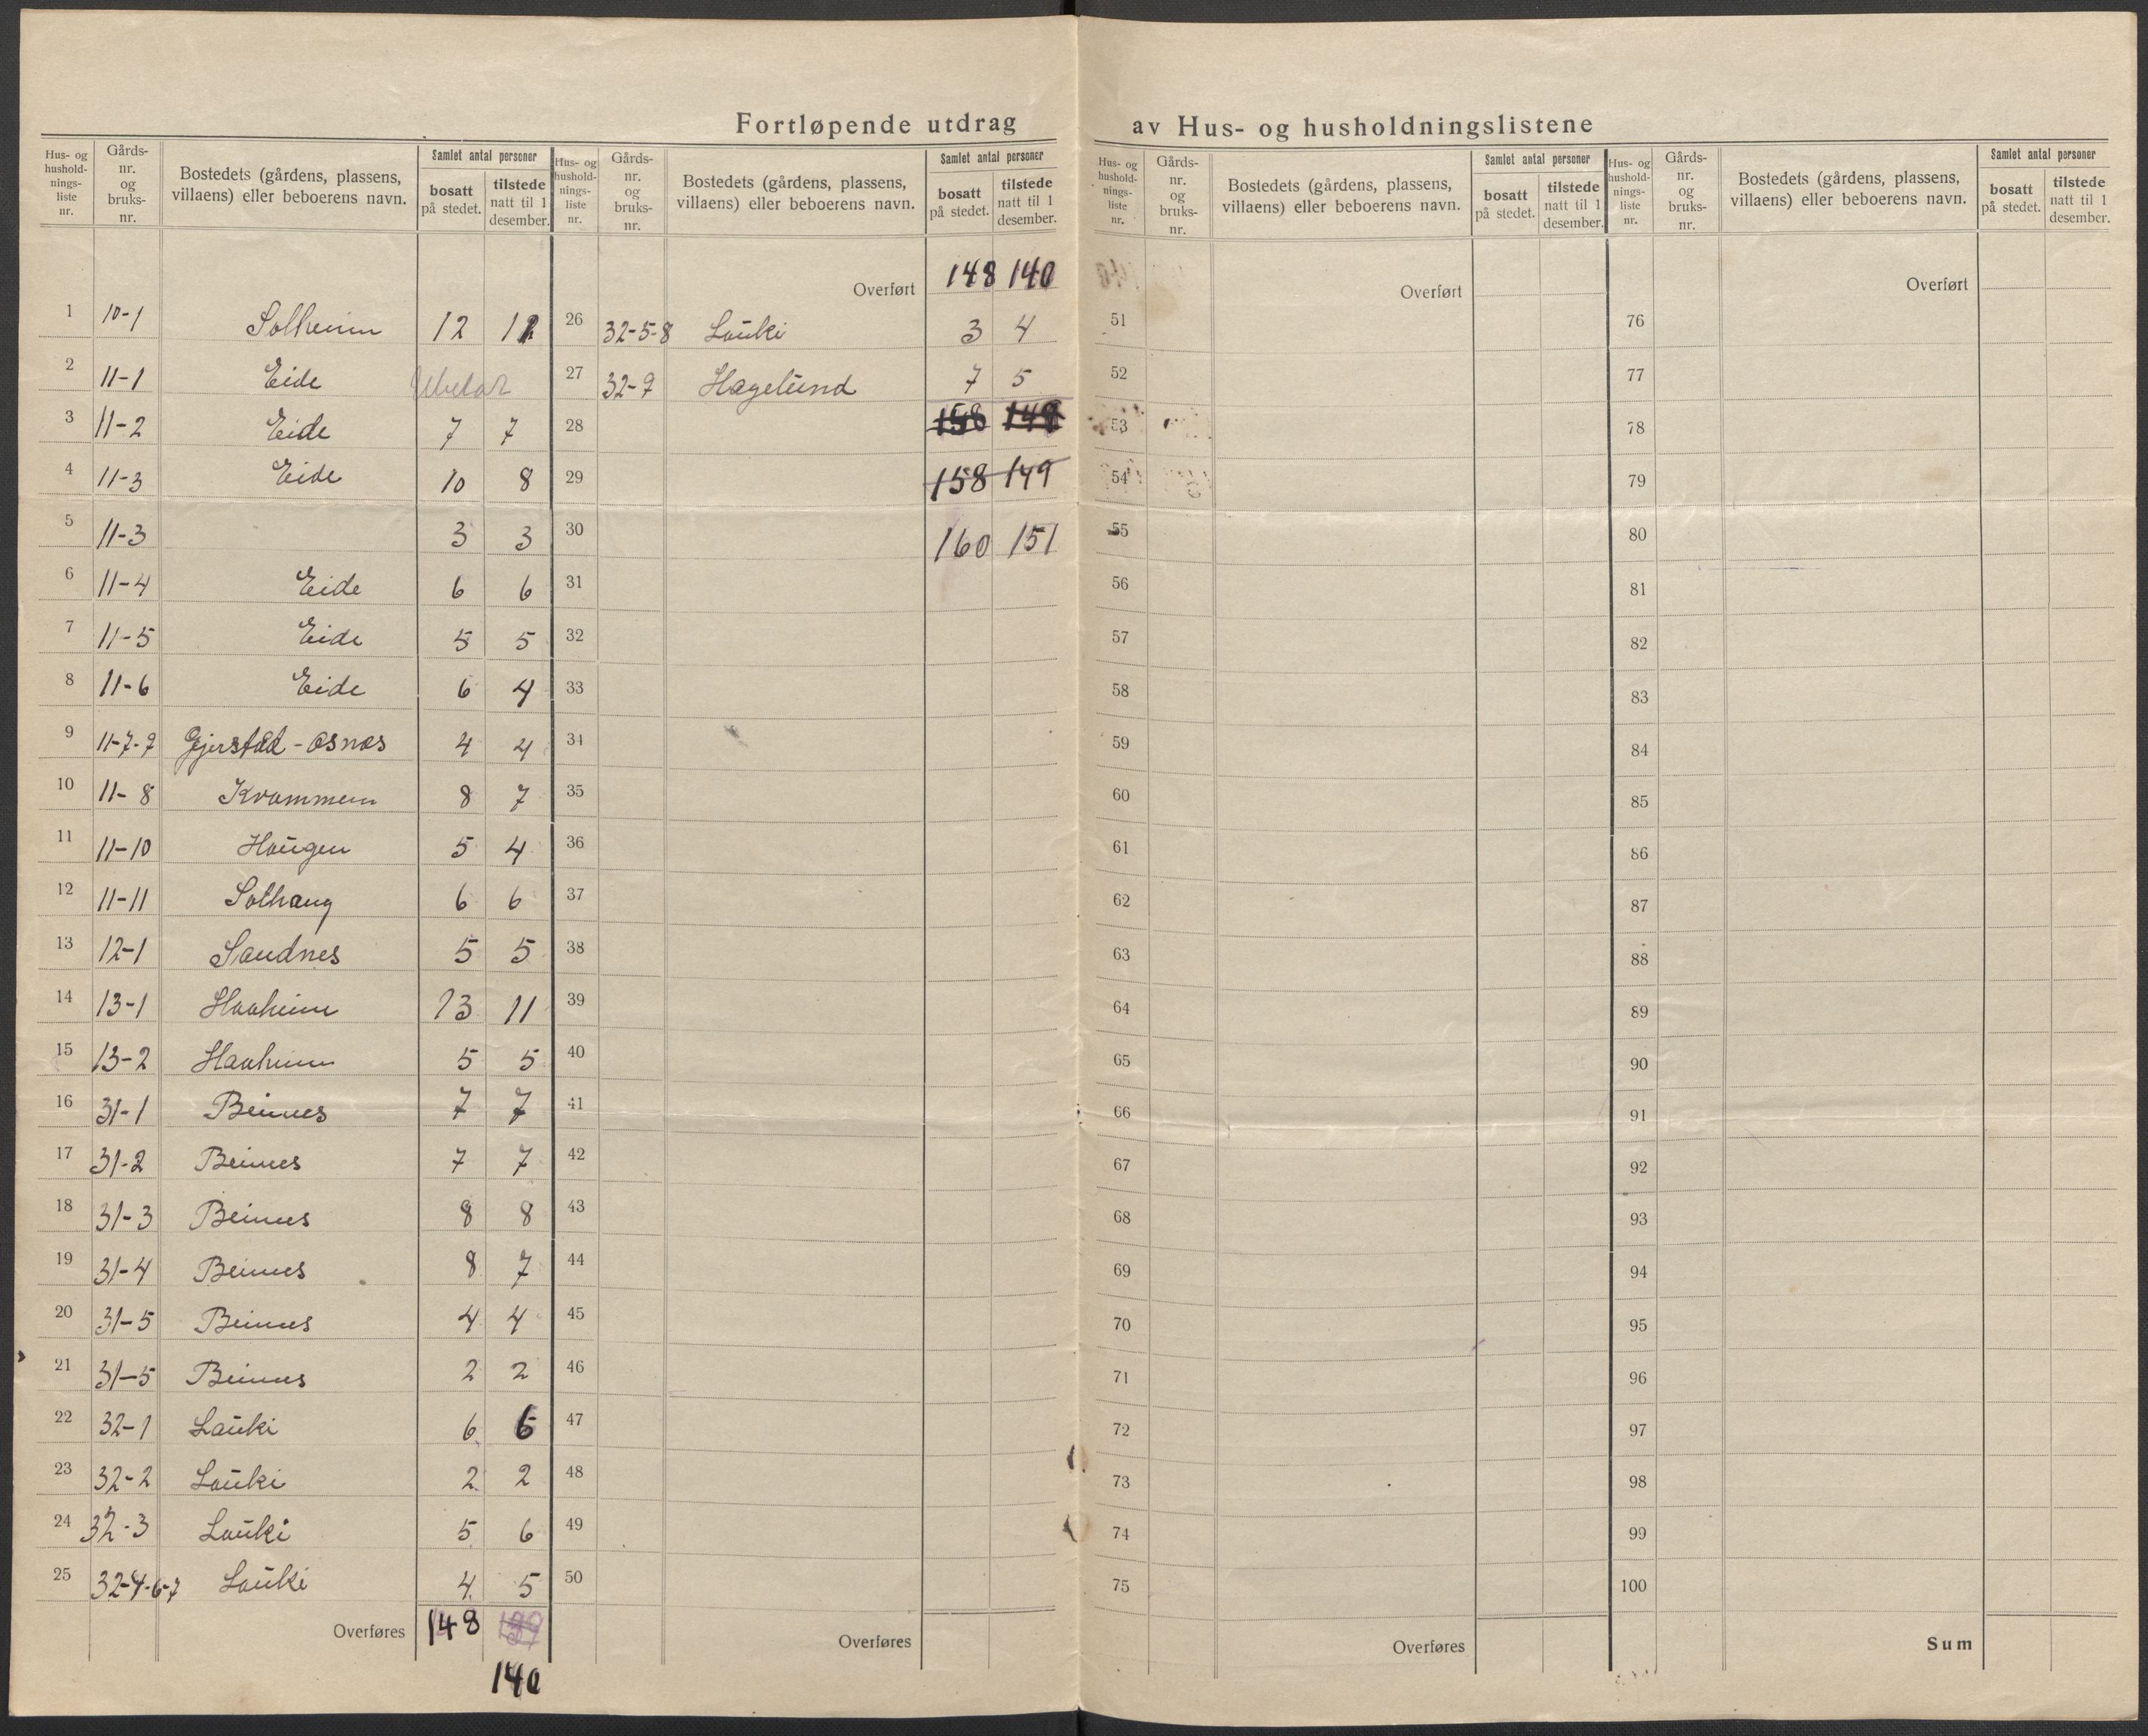 Fortløpende utdrag av Hus- og husholdningslistene
Hus- og hushold- nings- liste nr. Gårds- nr. og bruks- nr. Bostedets (gårdens, plassens, villaens) eller beboerens navn. Samlet antal personer bosatt på stedet. tilstede natt til 1 desember.
1 10-1 Solheim 12 12
2 11-1 Eide Ubebod
3 11-2 Eide 7 7
4 11-3 Eide 10 8
5 11-3 3 3
6 11-4 Eide 6 6
7 11-5 Eide 5 5
8 11-6 Eide 6 4
9 11-7-9 Gjerstad - Osnes 4 4
10 11-8 Kvammen 8 7
11 11-10 Haugen 5 4
12 11-11 Solhaug 6 6
13 12-1 Sandnes 5 5
14 13-1 Haaheim 13 11
15 13-2 Haaheim 5 5
16 31-1 Beinnes 7 7
17 31-2 Beinnes 7 7
18 31-3 Beinnes 8 8
19 31-4 Beinnes 8 7
20 31-5 Beinnes 4 4
21 31-5 Beinnes 2 2
22 32-1 Lauki 6 6
23 32-2 Lauki 2 2
24 32-3 Lauki 5 6
25 32-4-6-7 Lauki 4 5
Overføres 148 139
140
Hus- og hushold- nings- liste nr. Gårds- nr. og bruks- nr. Bostedets (gårdens, plassens, villaens) eller beboerens navn. Samlet antal personer bosatt på stedet. tilstede natt til 1 desember.
Overført 148 140
26 32-5-8 Lauki 3 4
27 32-9 Hagelund 7 5
28 158 149
29 158 149
30 160 151
31
32
33
34
35
36
37
38
39
40
41
42
43
44
45
46
47
48
49
50
Overføres
Hus- og hushold- nings- liste nr. Gårds- nr. og bruks- nr. Bostedets (gårdens, plassens, villaens) eller beboerens navn. Samlet antal personer bosatt på stedet. tilstede natt til 1 desember.
Overført
51
52
53
54
55
56
57
58
59
60
61
62
63
64
65
66
67
68
69
70
71
72
73
74
75
Overføres
Hus- og hushold- nings- liste nr. Gårds- nr. og bruks- nr. Bostedets (gårdens, plassens, villaens) eller beboerens navn. Samlet antal personer bosatt på stedet. tilstede natt til 1 desember.
Overført
76
77
78
79
80
81
82
83
84
85
86
87
88
89
90
91
92
93
94
95
96
97
98
99
100
Sum